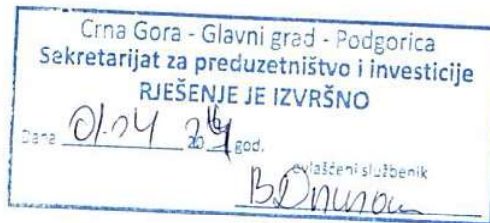 Crna Gora - Glavni grad - Podgorica
Sekretarijat za preduzetništvo i investicije
RJEŠENJE JE IZVRŠNO
Dana 01.04 20 god.
ovlašćeni službenik